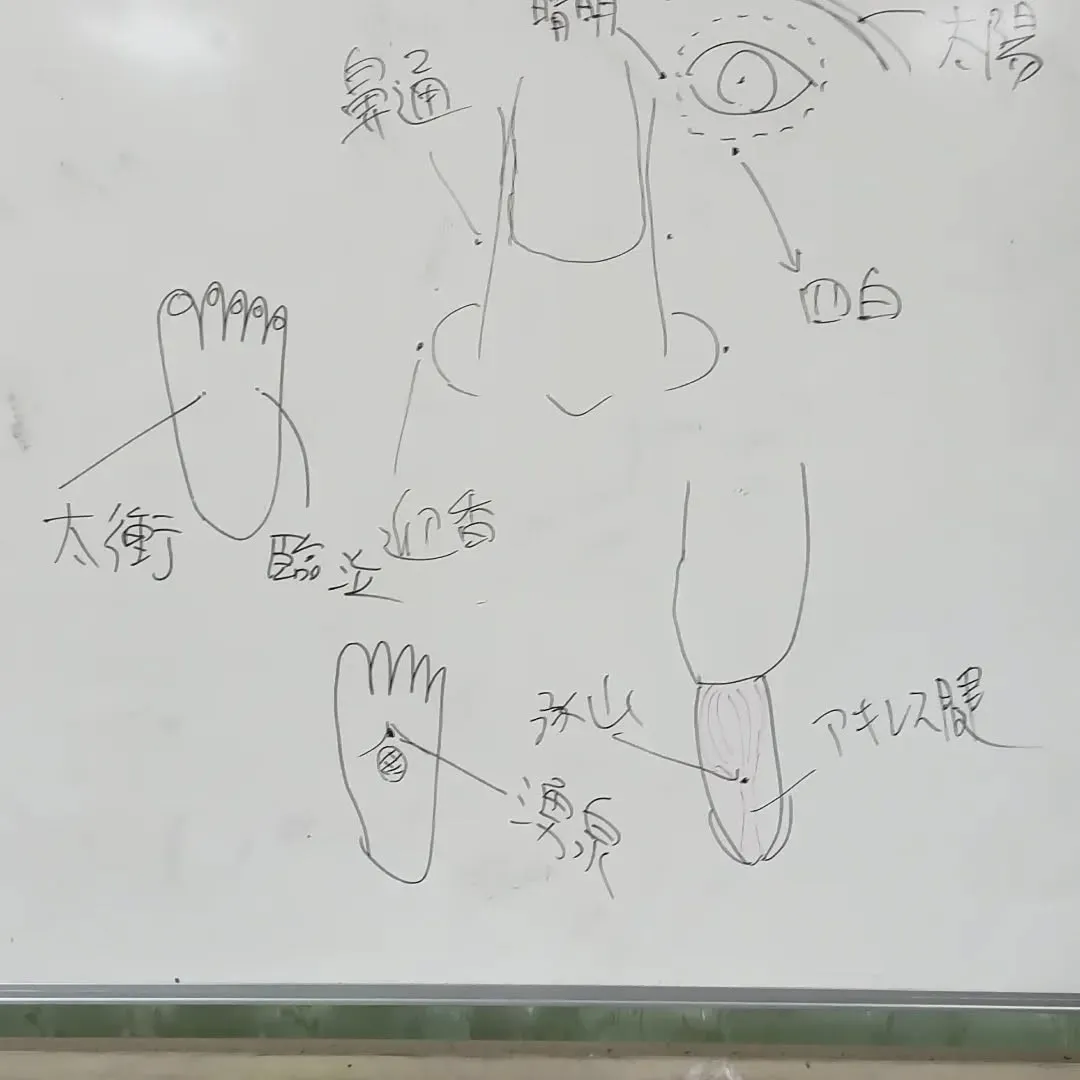 睛明
太陽
鼻通
四白
太衝
臨泣
迎香
承山
アキレス腱
湧泉